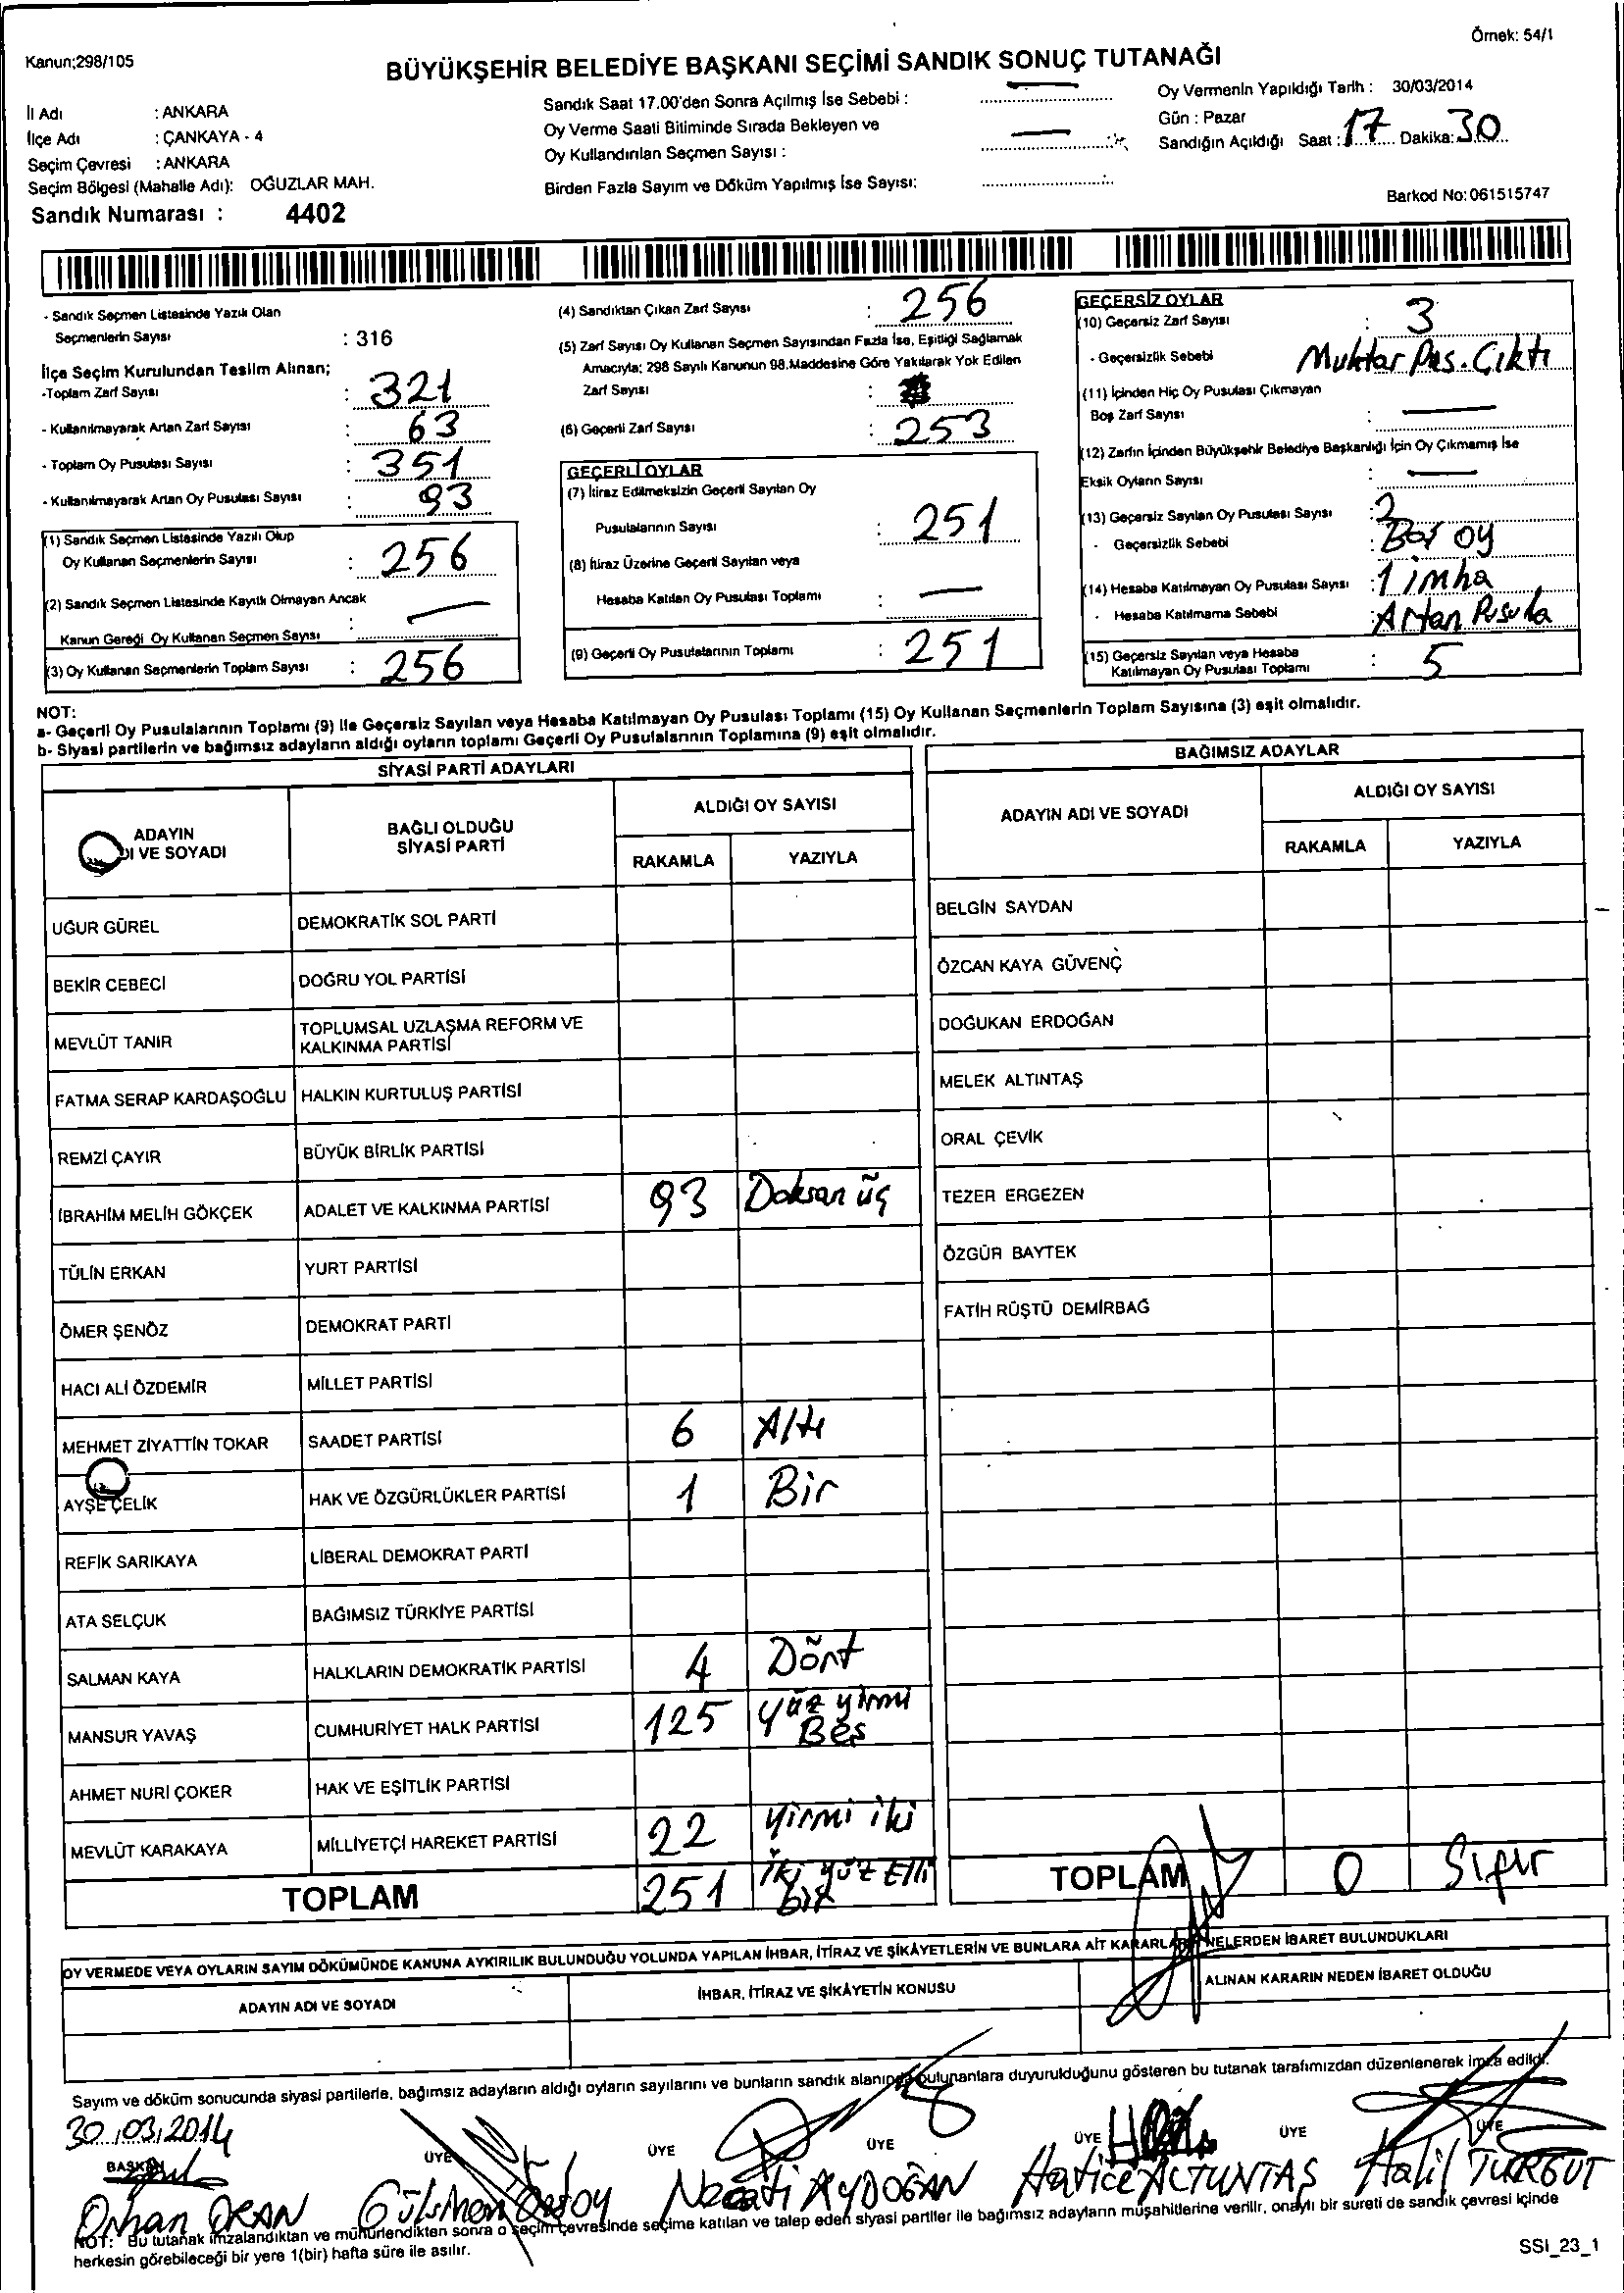 Örnek: 54/1
Kanun;298/105
BÜYÜKŞEHİR BELEDİYE BAŞKANI SEÇİMİ SANDIK SONUÇ TUTANAĞI
İl Adı : ANKARA
İlçe Adı : ÇANKAYA - 4
Seçim Çevresi : ANKARA
Seçim Bölgesi (Mahalle Adı): OĞUZLAR MAH.
Sandık Numarası : 4402
Sandık Saat 17.00'den Sonra Açılmış İse Sebebi :
Oy Verme Saati Bitiminde Sırada Bekleyen ve
Oy Kullandırılan Seçmen Sayısı :
Birden Fazla Sayım ve Döküm Yapılmış İse Sayısı:
Oy Vermenin Yapıldığı Tarih : 30/03/2014
Gün : Pazar
Sandığın Açıldığı Saat : 17 Dakika: 30
Barkod No: 061515747
- Sandık Seçmen Listesinde Yazılı Olan
Seçmenlerin Sayısı : 316
İlçe Seçim Kurulundan Teslim Alınan;
-Toplam Zarf Sayısı : 321
- Kullanılmayarak Artan Zarf Sayısı : 63
- Toplam Oy Pusulası Sayısı : 351
- Kullanılmayarak Artan Oy Pusulası Sayısı : 93
(1) Sandık Seçmen Listesinde Yazılı Olup
Oy Kullanan Seçmenlerin Sayısı : 256
(2) Sandık Seçmen Listesinde Kayıtlı Olmayan Ancak
Kanun Gereği Oy Kullanan Seçmen Sayısı : —
(3) Oy Kullanan Seçmenlerin Toplam Sayısı : 256
(4) Sandıktan Çıkan Zarf Sayısı : 256
(5) Zarf Sayısı Oy Kullanan Seçmen Sayısından Fazla İse, Eşitliği Sağlamak
Amacıyla; 298 Sayılı Kanunun 98.Maddesine Göre Yakılarak Yok Edilen
Zarf Sayısı :
(6) Geçerli Zarf Sayısı : 253
GEÇERLİ OYLAR
(7) İtiraz Edilmeksizin Geçerli Sayılan Oy
Pusulalarının Sayısı : 251
(8) İtiraz Üzerine Geçerli Sayılan veya
Hesaba Katılan Oy Pusulası Toplamı : —
(9) Geçerli Oy Pusulalarının Toplamı : 251
GEÇERSİZ OYLAR
(10) Geçersiz Zarf Sayısı : 3
- Geçersizlik Sebebi Muhtar Pus. Çıktı
(11) İçinden Hiç Oy Pusulası Çıkmayan
Boş Zarf Sayısı : —
(12) Zarfın İçinden Büyükşehir Belediye Başkanlığı İçin Oy Çıkmamış İse
Eksik Oyların Sayısı : —
(13) Geçersiz Sayılan Oy Pusulası Sayısı : 2
- Geçersizlik Sebebi : Boş oy
(14) Hesaba Katılmayan Oy Pusulası Sayısı : 1 imha
- Hesaba Katılmama Sebebi : Artan Pusula
(15) Geçersiz Sayılan veya Hesaba
Katılmayan Oy Pusulası Toplamı : 5
NOT:
a- Geçerli Oy Pusulalarının Toplamı (9) ile Geçersiz Sayılan veya Hesaba Katılmayan Oy Pusulası Toplamı (15) Oy Kullanan Seçmenlerin Toplam Sayısına (3) eşit olmalıdır.
b- Siyasi partilerin ve bağımsız adayların aldığı oyların toplamı Geçerli Oy Pusulalarının Toplamına (9) eşit olmalıdır.
SİYASİ PARTİ ADAYLARI
ADAYIN
DI VE SOYADI
BAĞLI OLDUĞU
SİYASİ PARTİ
ALDIĞI OY SAYISI
RAKAMLA YAZIYLA
UĞUR GÜREL DEMOKRATİK SOL PARTİ
BEKİR CEBECİ DOĞRU YOL PARTİSİ
MEVLÜT TANIR TOPLUMSAL UZLAŞMA REFORM VE
KALKINMA PARTİSİ
FATMA SERAP KARDAŞOĞLU HALKIN KURTULUŞ PARTİSİ
REMZİ ÇAYIR BÜYÜK BİRLİK PARTİSİ
İBRAHİM MELİH GÖKÇEK ADALET VE KALKINMA PARTİSİ 93 Doksan üç
TÜLİN ERKAN YURT PARTİSİ
ÖMER ŞENÖZ DEMOKRAT PARTİ
HACI ALİ ÖZDEMİR MİLLET PARTİSİ
MEHMET ZİYATTİN TOKAR SAADET PARTİSİ 6 Altı
AYŞE ÇELİK HAK VE ÖZGÜRLÜKLER PARTİSİ 1 Bir
REFİK SARIKAYA LİBERAL DEMOKRAT PARTİ
ATA SELÇUK BAĞIMSIZ TÜRKİYE PARTİSİ
SALMAN KAYA HALKLARIN DEMOKRATİK PARTİSİ 4 Dört
MANSUR YAVAŞ CUMHURİYET HALK PARTİSİ 125 Yüz yirmi
Beş
AHMET NURİ ÇOKER HAK VE EŞİTLİK PARTİSİ
MEVLÜT KARAKAYA MİLLİYETÇİ HAREKET PARTİSİ 22 Yirmi iki
TOPLAM 251 İki yüz Elli
bir
BAĞIMSIZ ADAYLAR
ADAYIN ADI VE SOYADI
ALDIĞI OY SAYISI
RAKAMLA YAZIYLA
BELGİN SAYDAN
ÖZCAN KAYA GÜVENÇ
DOĞUKAN ERDOĞAN
MELEK ALTINTAŞ
ORAL ÇEVİK
TEZER ERGEZEN
ÖZGÜR BAYTEK
FATİH RÜŞTÜ DEMİRBAĞ
TOPLAM 0 Sıfır
OY VERMEDE VEYA OYLARIN SAYIM DÖKÜMÜNDE KANUNA AYKIRILIK BULUNDUĞU YOLUNDA YAPILAN İHBAR, İTİRAZ VE ŞİKÂYETLERİN VE BUNLARA AİT KARARLARIN NELERDEN İBARET BULUNDUKLARI
ADAYIN ADI VE SOYADI
İHBAR, İTİRAZ VE ŞİKÂYETİN KONUSU
ALINAN KARARIN NEDEN İBARET OLDUĞU
Sayım ve döküm sonucunda siyasi partilerle, bağımsız adayların aldığı oyların sayılarını ve bunların sandık alanında bulunanlara duyurulduğunu gösteren bu tutanak tarafımızdan düzenlenerek imza edildi.
30.03.2014
BAŞKAN ÜYE ÜYE ÜYE ÜYE ÜYE ÜYE
Orhan OKAN Necati AYDOĞAN Hatice ALTUNTAŞ Halil TURGUT
NOT: Bu tutanak imzalandıktan ve mühürlendikten sonra o seçim çevresinde seçime katılan ve talep eden siyasi partiler ile bağımsız adayların müşahitlerine verilir, onaylı bir sureti de sandık çevresi içinde
herkesin görebileceği bir yere 1(bir) hafta süre ile asılır.
SSI_23_1